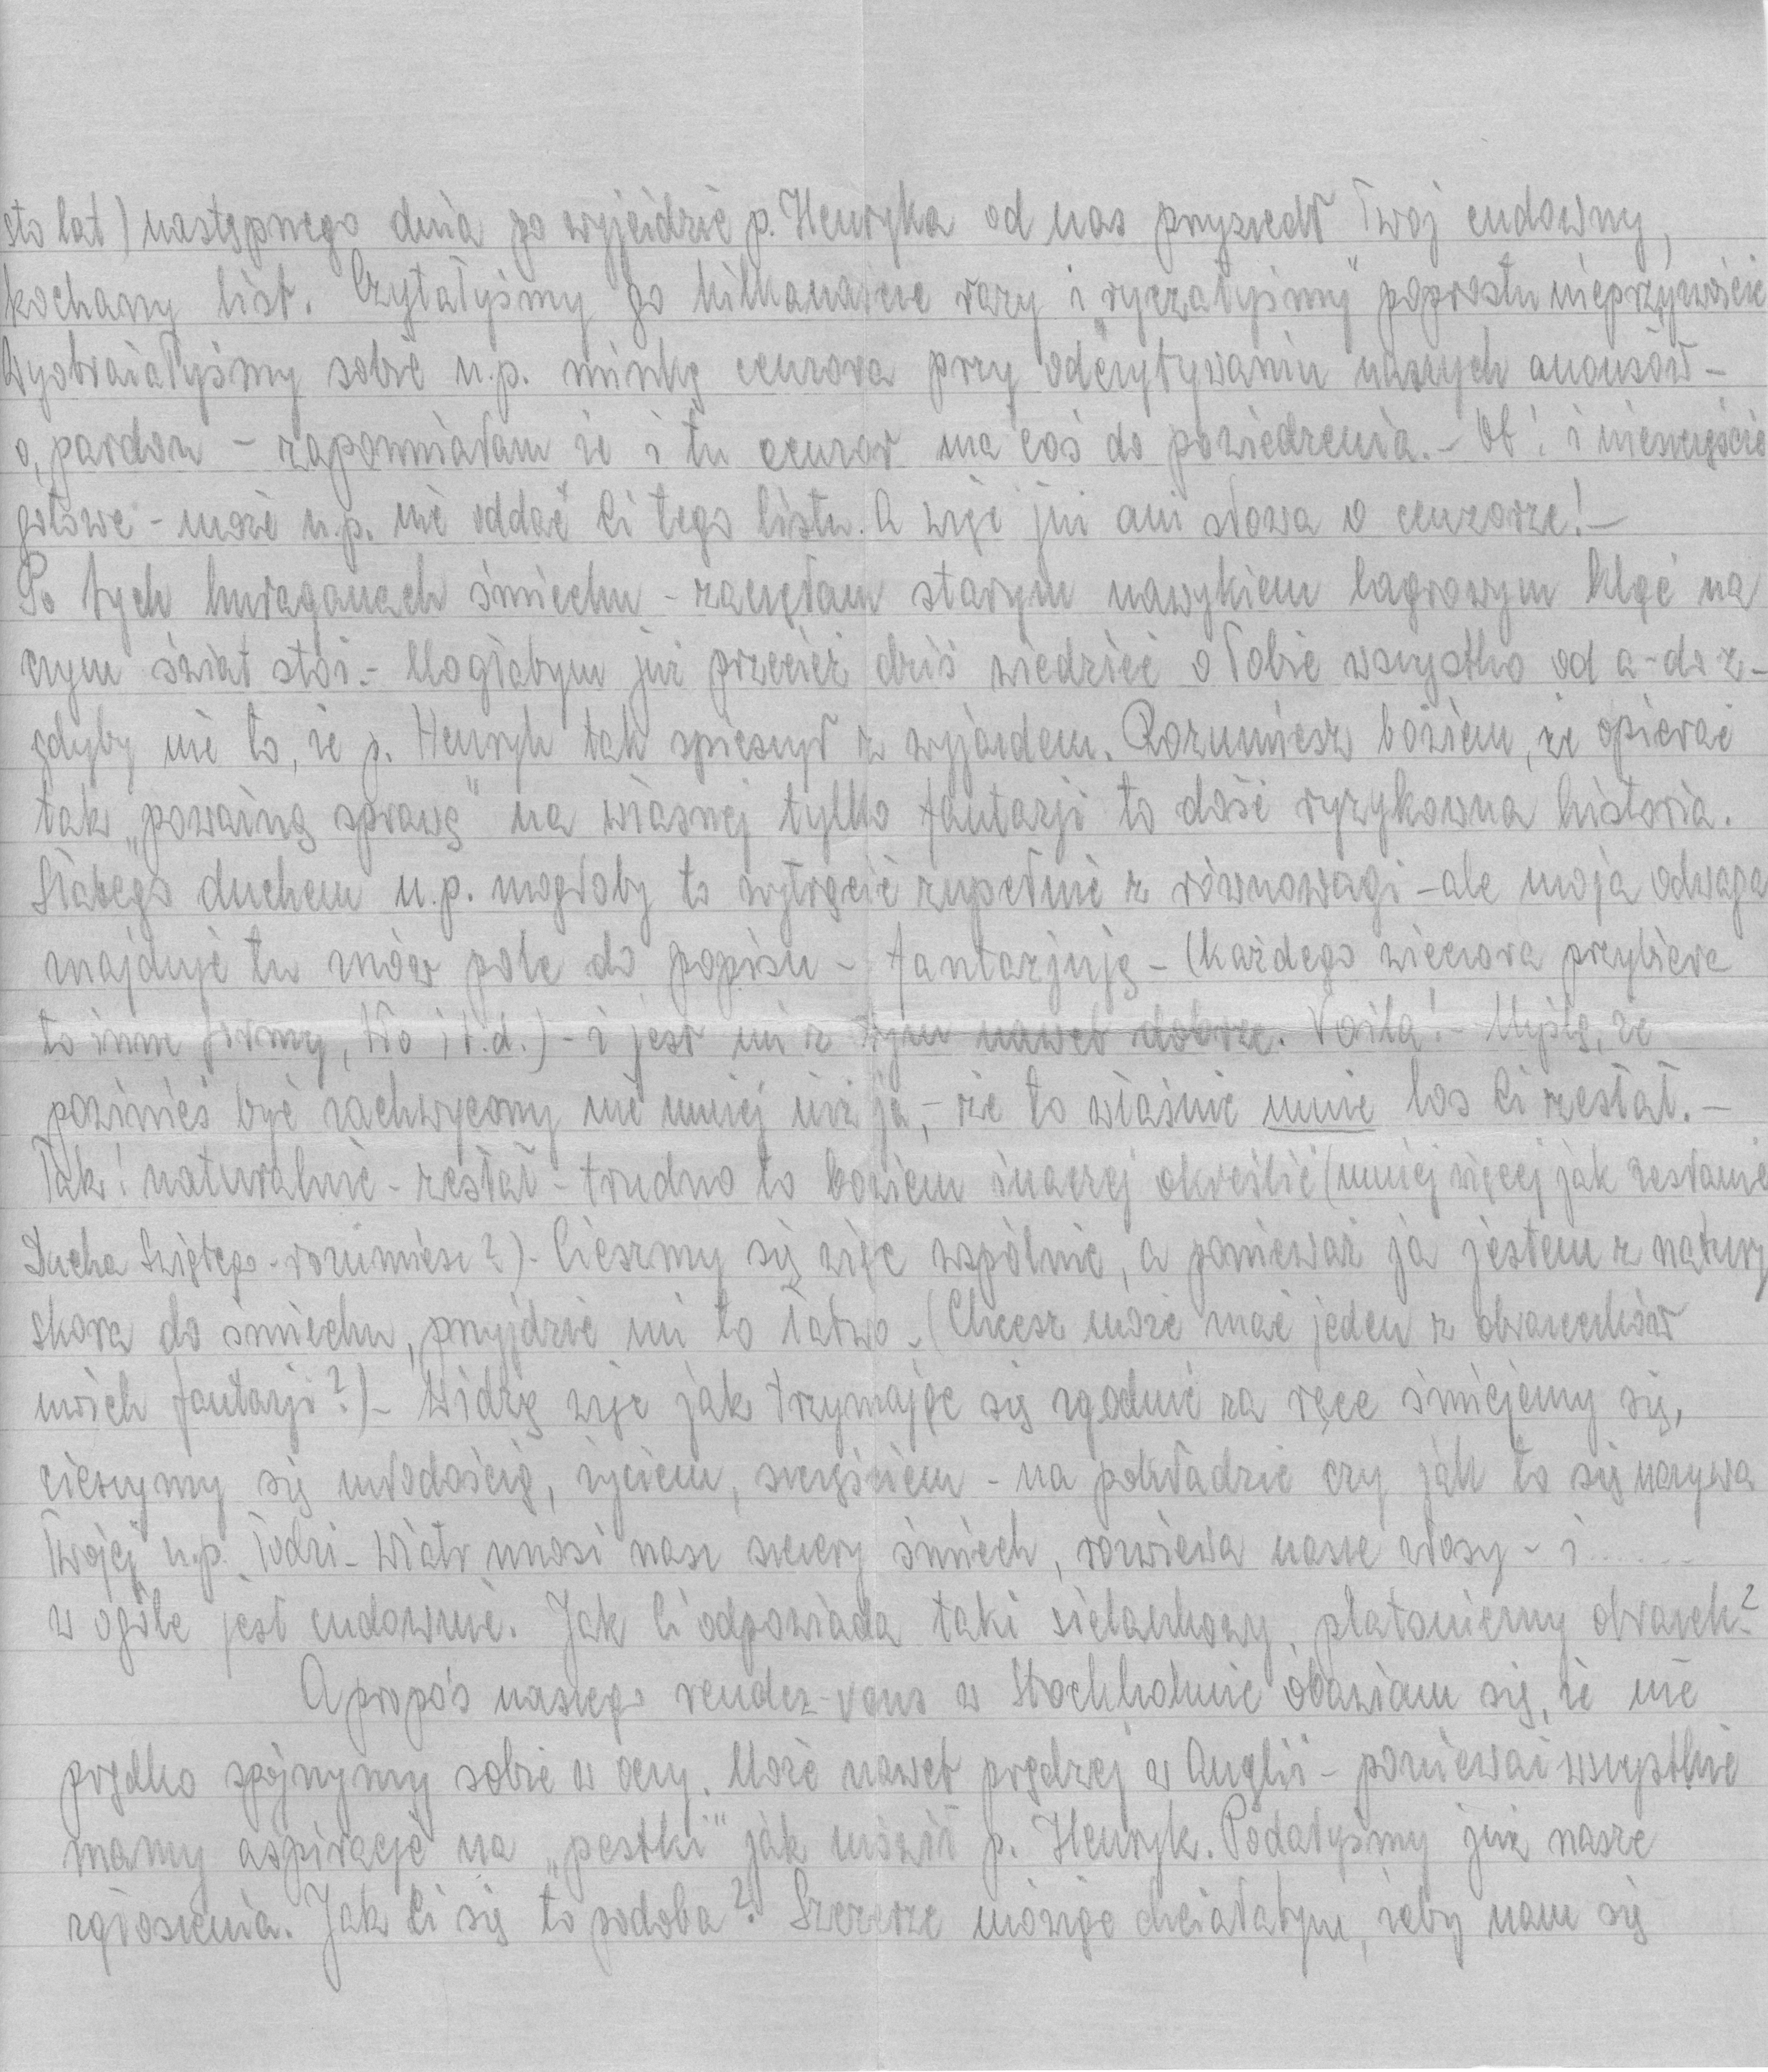 sto lat) następnego dnia po wyjeździe p. Henryka od nas przyszedł Twój cudowny,
kochany list. Czytałyśmy go kilkanaście razy i „ryczałyśmy” poprostu nieprzyzwoicie
Wyobrażałyśmy sobie n.p. minkę cenzora przy odczytywaniu naszych anonsów –
o, pardon – zapomniałam że i tu cenzor ma coś do powiedzenia. – Ot! i nieszczęście
gotowe – może n.p. nie oddać Ci tego listu. A więc już ani słowa o cenzorze! –
Po tych huraganach śmiechu – zaczęłam starym nawykiem lagrowym kląć na
czym świat stoi. – Mogłabym już przecież dziś wiedzieć o Tobie wszystko od a – do z –
gdyby nie to, że p. Henryk tak spieszył z wyjazdem. Rozumiesz bowiem, że opierać
tak „poważną sprawę” na własnej tylko fantazji to dość ryzykowna historia.
Słabego duchem n.p. mogłoby to wytrącić zupełnie z równowagi – ale moja odwaga
znajduje tu znów pole do popisu – fantazjuję – (każdego wieczora przybiera
to inne formy, tło i t.d.) – i jest mi z tym nawet dobrze. Voila! – Myślę, że
powinieś być zachwycony nie mniej niż ja, – że to właśnie mnie los Ci zesłał. –
Tak! naturalnie – zesłał – trudno to bowiem inaczej określić (mniej więcej jak zesłanie
Ducha Świętego – rozumiesz?) – Cieszmy się więc wspólnie, a ponieważ ja jestem z natury
skora do śmiechu, przyjdzie mi to łatwo. (Chcesz może znać jeden z obrazeczków
moich fantazji?) – Widzę więc jak trzymając się zgodnie za ręce śmiejemy się,
cieszymy się młodością, życiem, szczęściem – na pokładzie czy jak to się nazywa
Twojej n.p. łodzi – wiatr unosi nasz szczery śmiech, rozwiewa nasze włosy – i ......
w ogóle jest cudownie. Jak Ci odpowiada taki sielankowy, platoniczny obrazek?
Apropós naszego rendez-vous w Stockholmie obawiam się, że nie
prędko spojrzymy sobie w oczy. Może nawet prędzej w Anglii – ponieważ wszystkie
mamy aspiracje na „pestki” jak mówił p. Henryk. Podałyśmy już nasze
zgłoszenia. Jak Ci się to podoba? Szczerze mówiąc chciałabym, żeby nam się